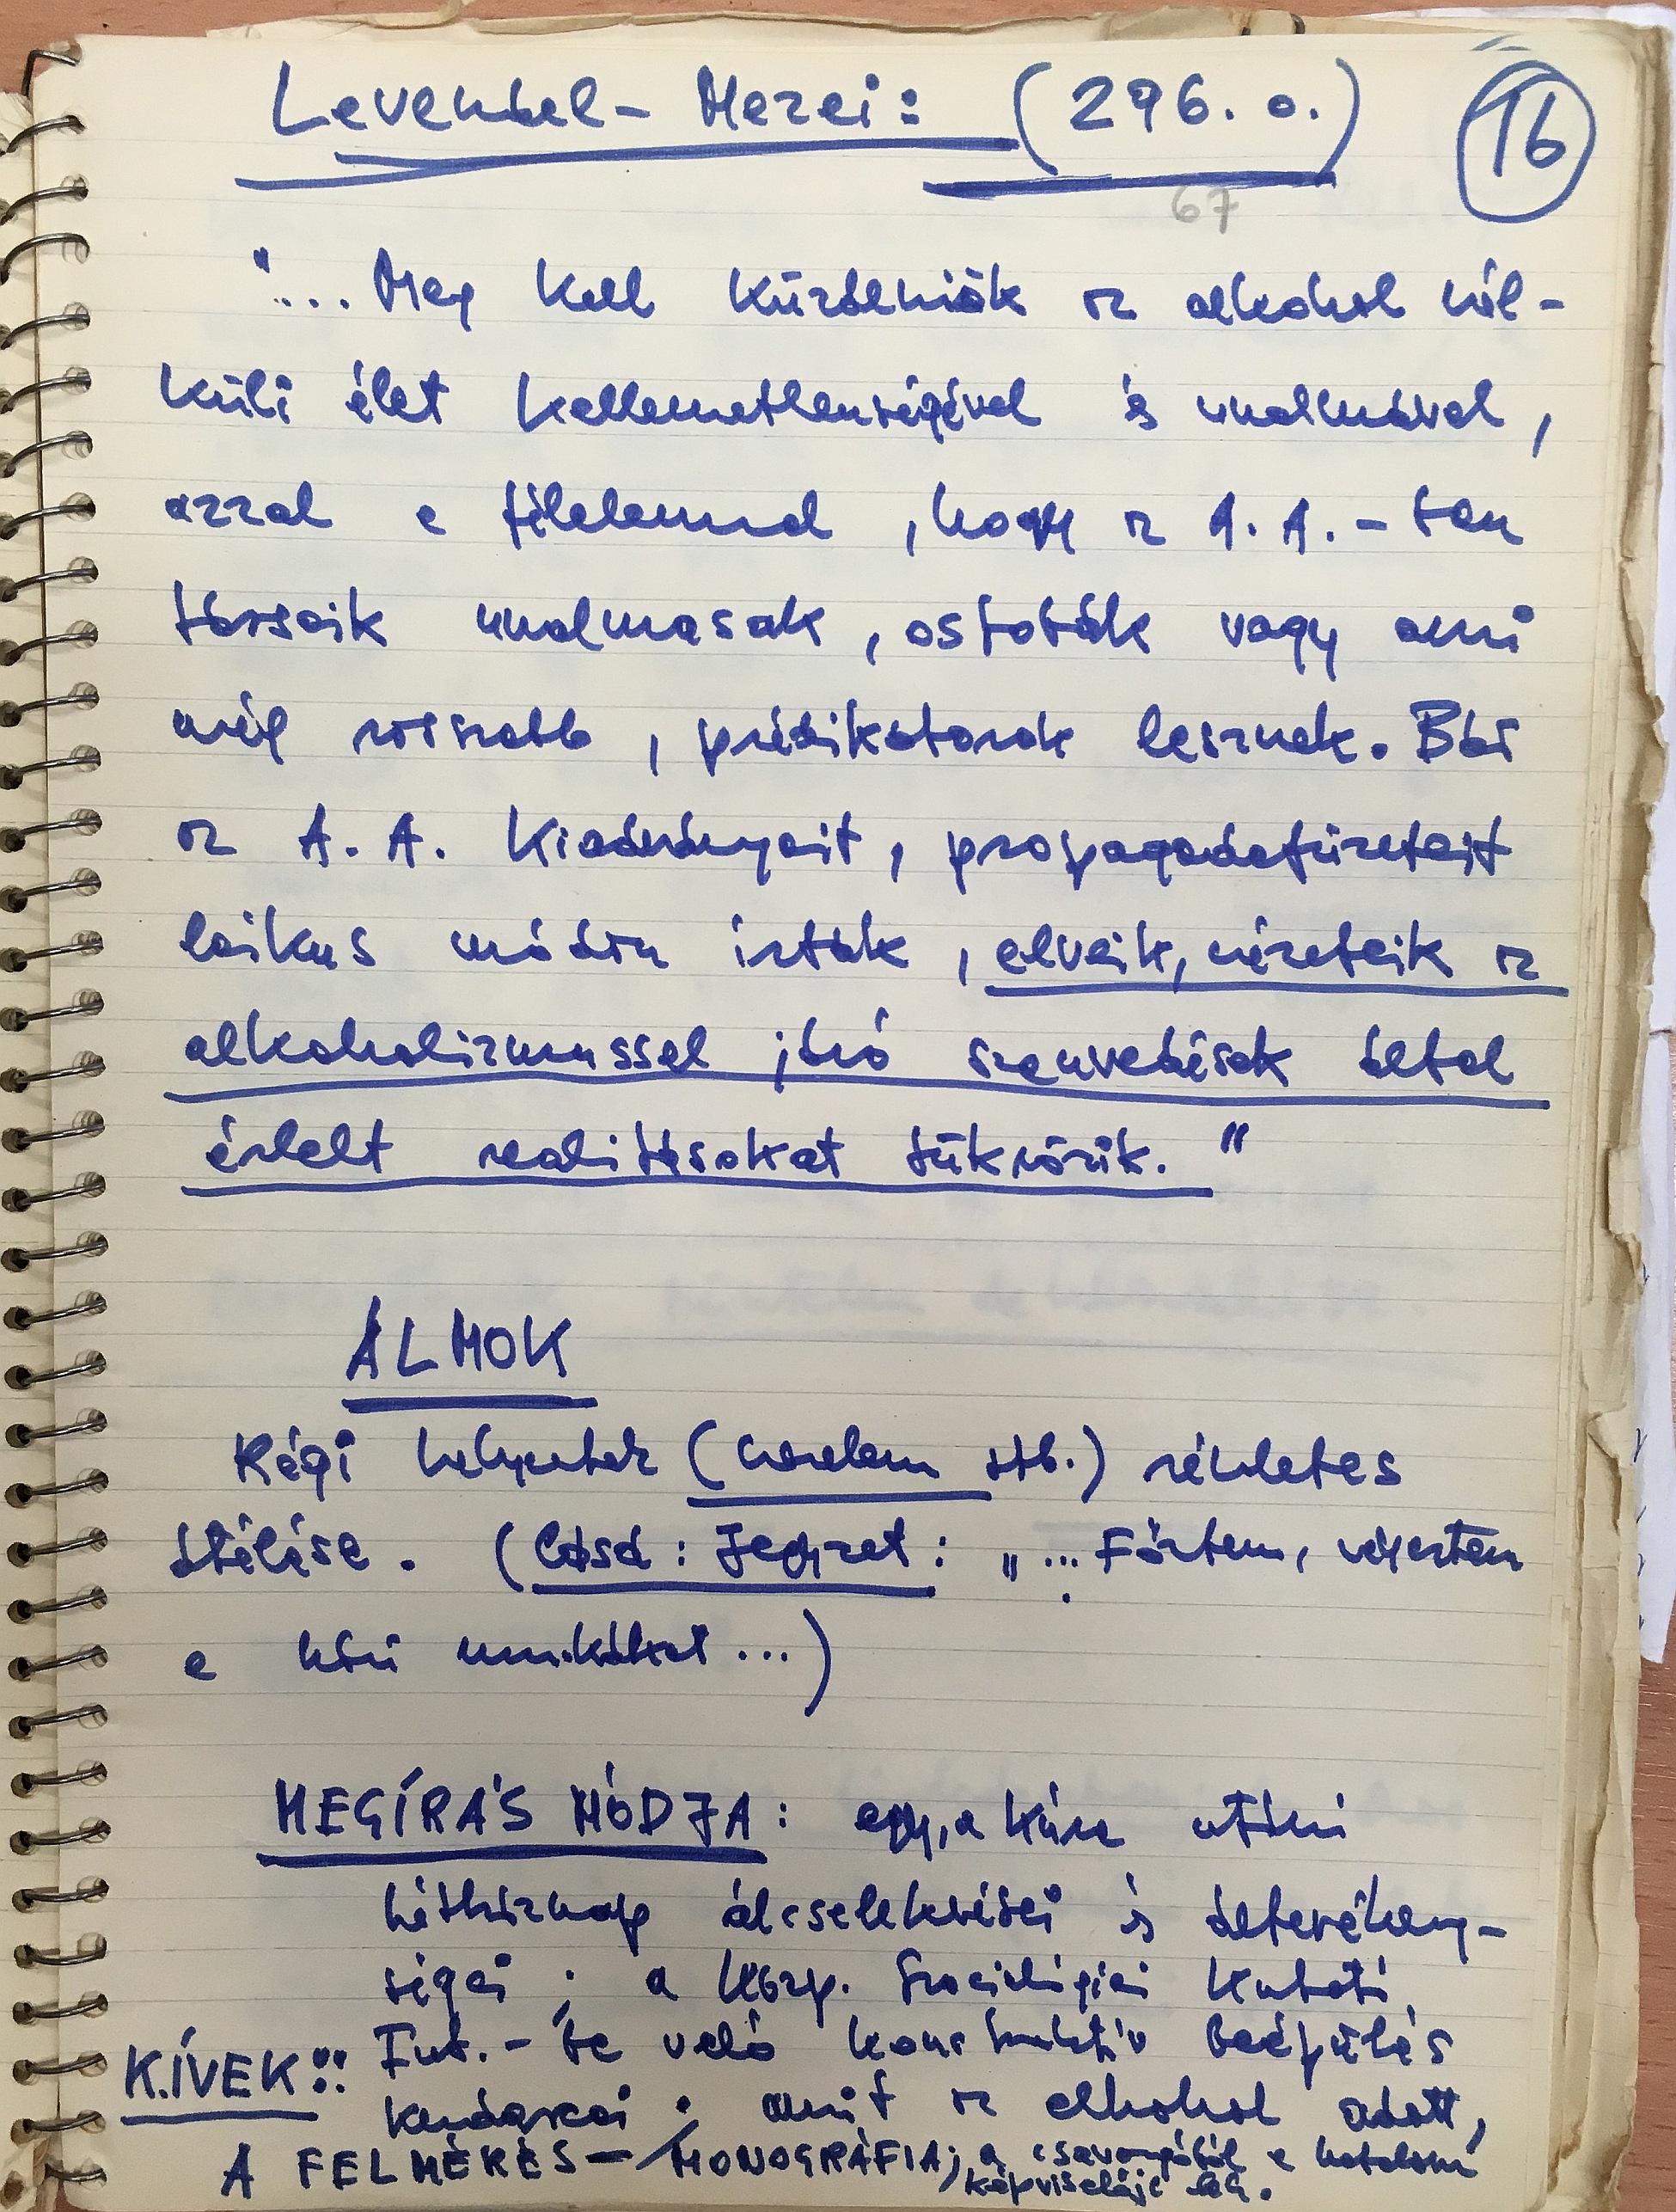 Levendel - Merei: (296. o.)
16
67
"... Meg kell küzdeniök az alkohol nél-
küli élet kellemetlenségével és unalmával,
azzal a félelemmel, hogy az A. A. - ban
társaik unalmasak, ostobák vagy ami
még rosszabb, prédikátorok lesznek. Bár
az A. A. kiadványait, propagadafüzeteit
laikus módon írták, elveik, nézeteik az
alkoholizmussal járó szenvedések által
érlelt realitásokat tükrözik."
ÁLMOK
Régi helyzetek (szerelem stb.) részletes
átélése. (Lásd: Jegyzet: "... Főztem,
a házi munkákat ...)
MEGÍRÁS MÓDJA: egy, a kúra utáni
hétköznap álcselekvései és áltevékeny-
ségei; a közp. Szociológiai Kutató
Int. - be való konstruktív beépülés
KÍVEK!!
kudarcai; amit az alkohol adott,
A FELMÉRÉS - MONOGRÁFIA; a csavargóból a hatalom
képviselője lett.